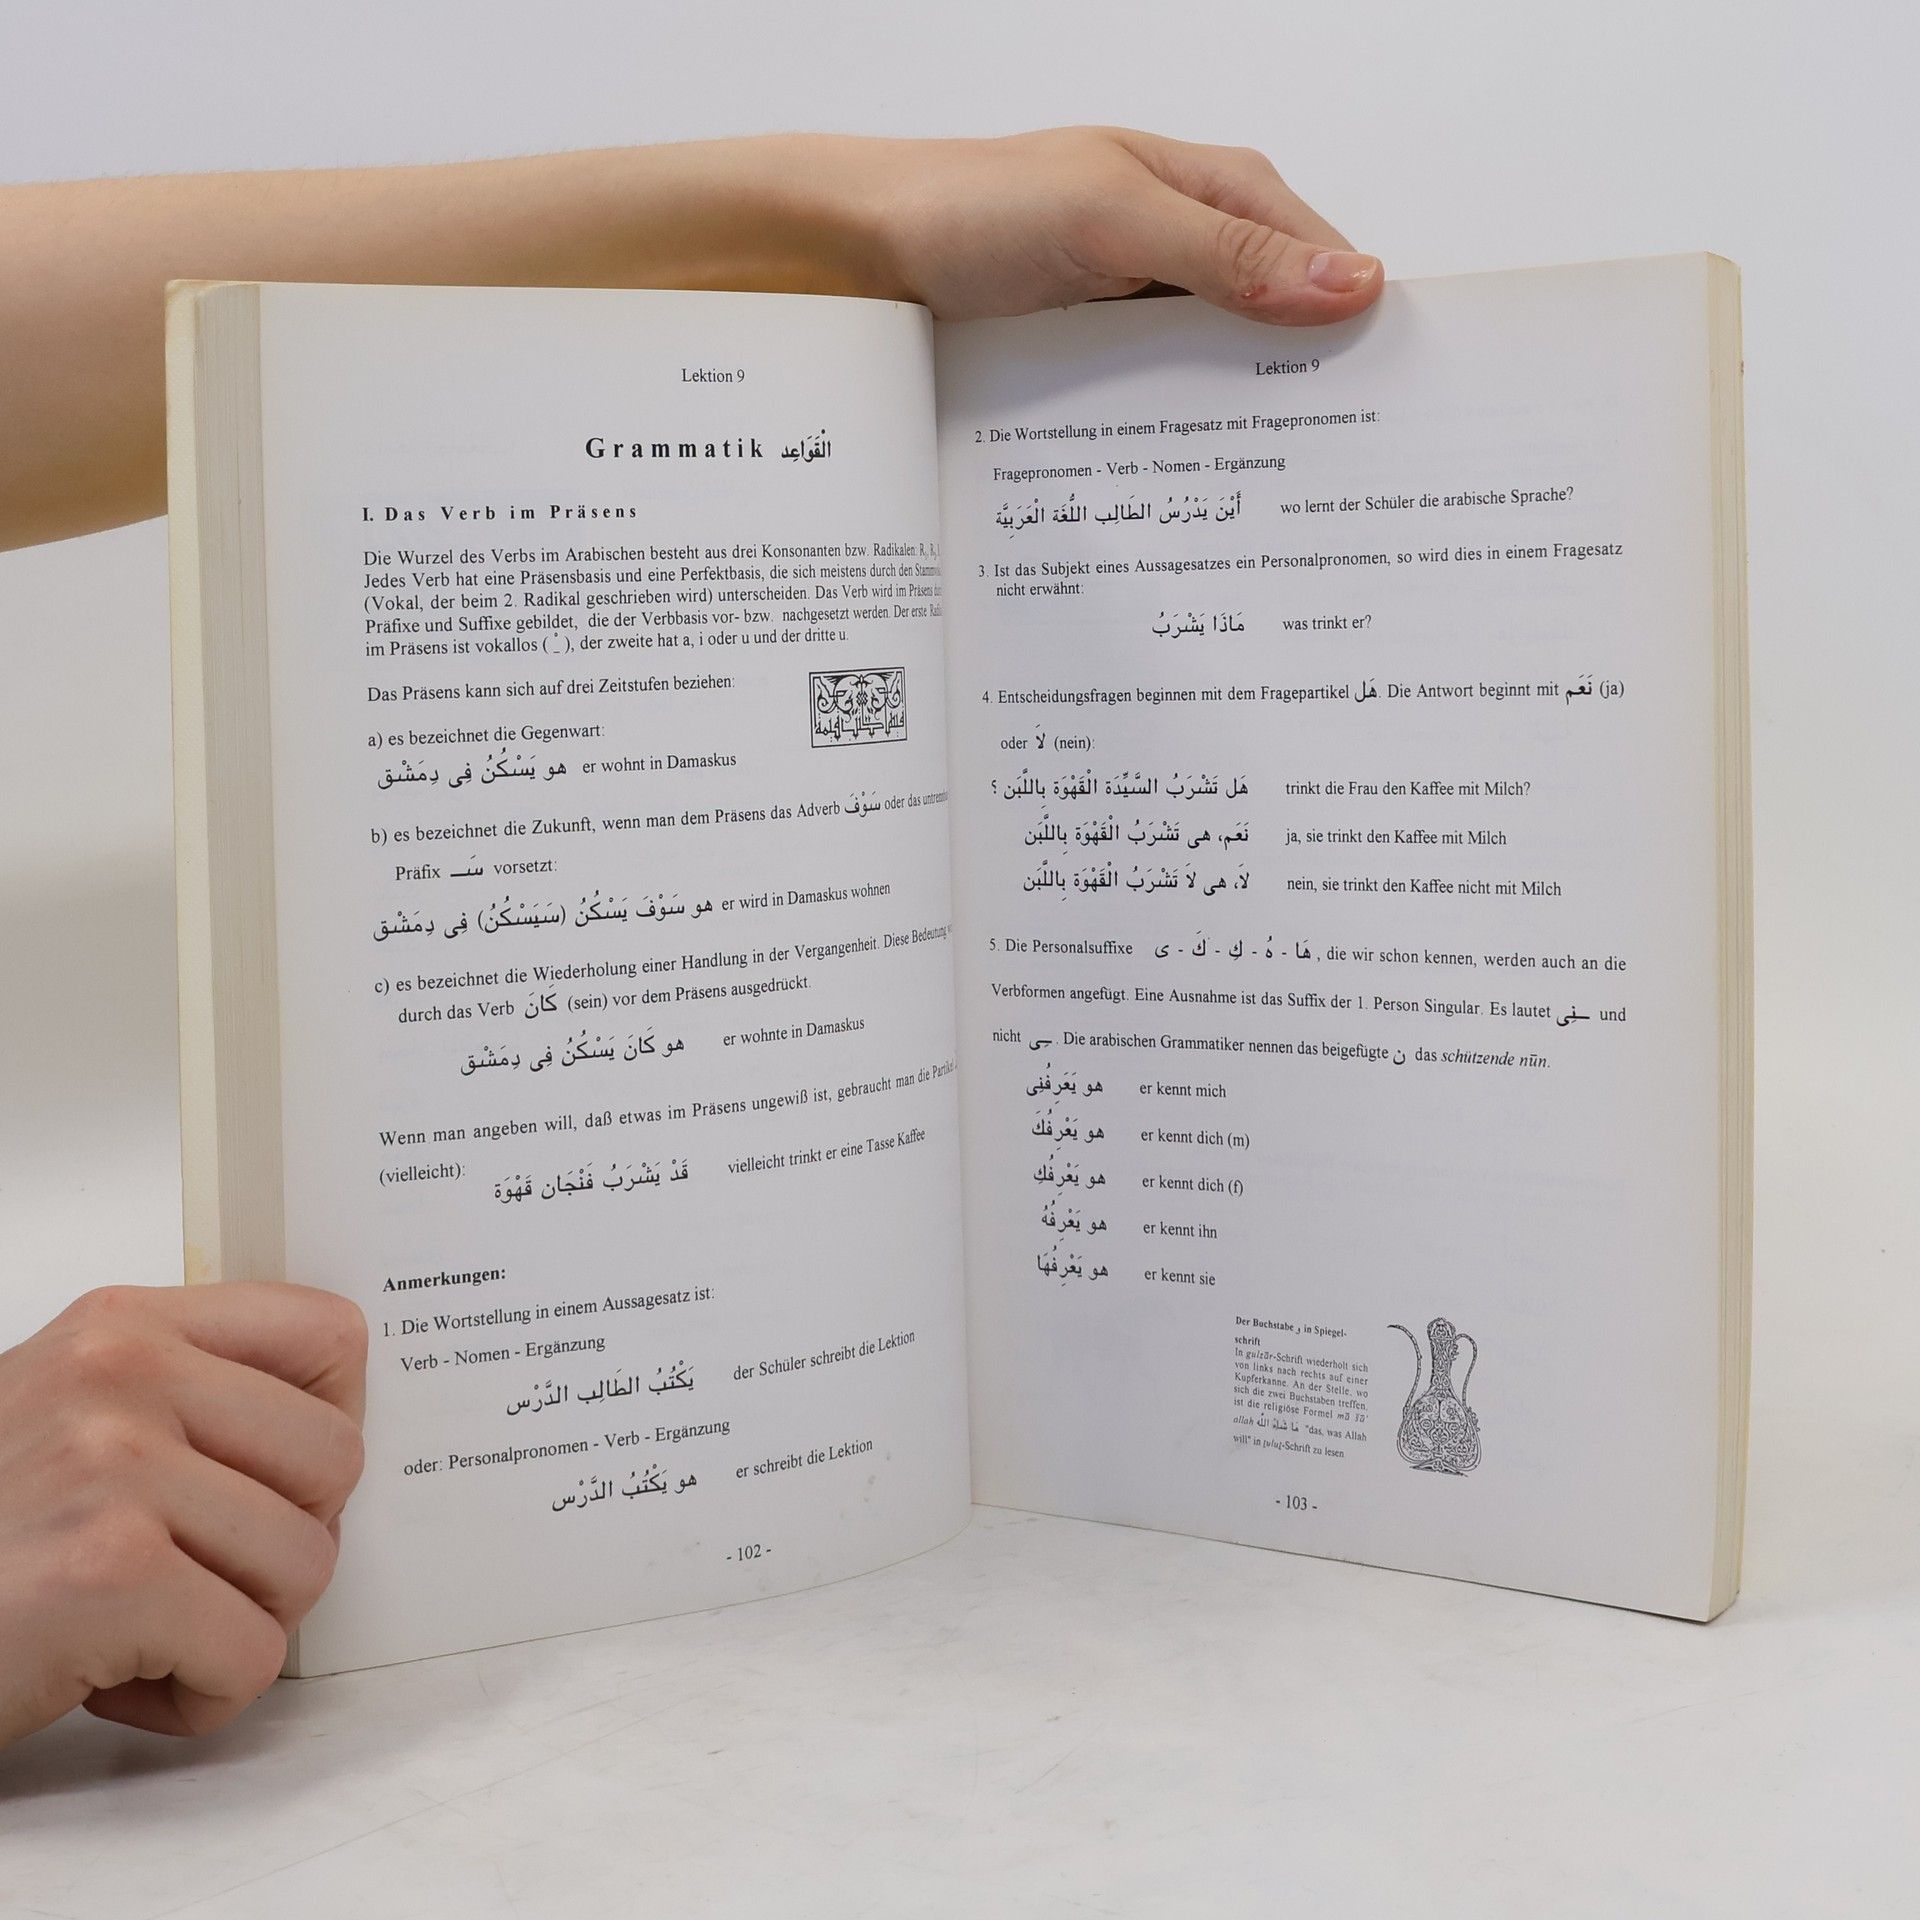 Lektion 9
Grammatik الْقَوَاعِد
I. Das Verb im Präsens
Die Wurzel des Verbs im Arabischen besteht aus drei Konsonanten bzw. Radikalen: R
Jedes Verb hat eine Präsensbasis und eine Perfektbasis, die sich meistens durch den
(Vokal, der beim 2. Radikal geschrieben wird) unterscheiden. Das Verb wird im Präsens
Präfixe und Suffixe gebildet, die der Verbbasis vor- bzw. nachgesetzt werden. Der erste
im Präsens ist vokallos ( ْ ), der zweite hat a, i oder u und der dritte u.
Das Präsens kann sich auf drei Zeitstufen beziehen:
a) es bezeichnet die Gegenwart:
هو يَسْكُنُ فِى دِمَشْق er wohnt in Damaskus
b) es bezeichnet die Zukunft, wenn man dem Präsens das Adverb سَوْفَ oder das
Präfix سَـ vorsetzt:
هو سَوْفَ يَسْكُنُ (سَيَسْكُنُ) فِى دِمَشْق er wird in Damaskus wohnen
c) es bezeichnet die Wiederholung einer Handlung in der Vergangenheit. Diese Bedeutung
durch das Verb كَانَ (sein) vor dem Präsens ausgedrückt.
هو كَانَ يَسْكُنُ فِى دِمَشْق er wohnte in Damaskus
Wenn man angeben will, daß etwas im Präsens ungewiß ist, gebraucht man die Partikel
(vielleicht): قَدْ يَشْرَبُ فَنْجَان قَهْوَة vielleicht trinkt er eine Tasse Kaffee
Anmerkungen:
1. Die Wortstellung in einem Aussagesatz ist:
Verb - Nomen - Ergänzung
يَكْتُبُ الطَالِب الدَّرْس der Schüler schreibt die Lektion
oder: Personalpronomen - Verb - Ergänzung
هو يَكْتُبُ الدَّرْس er schreibt die Lektion
- 102 -
Lektion 9
2. Die Wortstellung in einem Fragesatz mit Fragepronomen ist:
Fragepronomen - Verb - Nomen - Ergänzung
أَيْنَ يَدْرُسُ الطَالِب اللُّغَة الْعَرَبِيَّة wo lernt der Schüler die arabische Sprache?
3. Ist das Subjekt eines Aussagesatzes ein Personalpronomen, so wird dies in einem Fragesatz
nicht erwähnt:
مَاذَا يَشْرَبُ was trinkt er?
4. Entscheidungsfragen beginnen mit dem Fragepartikel هَل. Die Antwort beginnt mit نَعَم (ja)
oder لاَ (nein):
هَل تَشْرَبُ السَّيِّدَة الْقَهْوَة بِاللَّبَن ؟ trinkt die Frau den Kaffee mit Milch?
نَعَم، هى تَشْرَبُ الْقَهْوَة بِاللَّبَن ja, sie trinkt den Kaffee mit Milch
لاَ، هى لاَ تَشْرَبُ الْقَهْوَة بِاللَّبَن nein, sie trinkt den Kaffee nicht mit Milch
5. Die Personalsuffixe هَا - هُ - كِ - كَ - ى , die wir schon kennen, werden auch an die
Verbformen angefügt. Eine Ausnahme ist das Suffix der 1. Person Singular. Es lautet ـنِى und
nicht ـِى . Die arabischen Grammatiker nennen das beigefügte ن das schützende nūn.
هو يَعَرِفُنِى er kennt mich
هو يَعْرِفُكَ er kennt dich (m)
هو يَعْرِفُكِ er kennt dich (f)
هو يَعْرِفُهُ er kennt ihn
هو يَعْرِفُهَا er kennt sie
Der Buchstabe و in Spiegel-
schrift
In gulzār-Schrift wiederholt sich
von links nach rechts auf einer
Kupferkanne. An der Stelle, wo
sich die zwei Buchstaben treffen,
ist die religiöse Formel mā šā'
allah مَا شَاءَ اللّٰه "das, was Allah
will" in ṯuluṯ-Schrift zu lesen
- 103 -